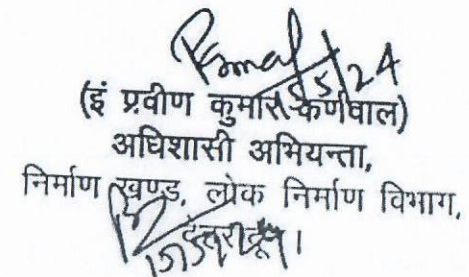 15/5/24
(इं प्रवीण कुमार कर्णवाल)
अधिशासी अभियन्ता,
निर्माण खण्ड, लोक निर्माण विभाग,
देहरादून।